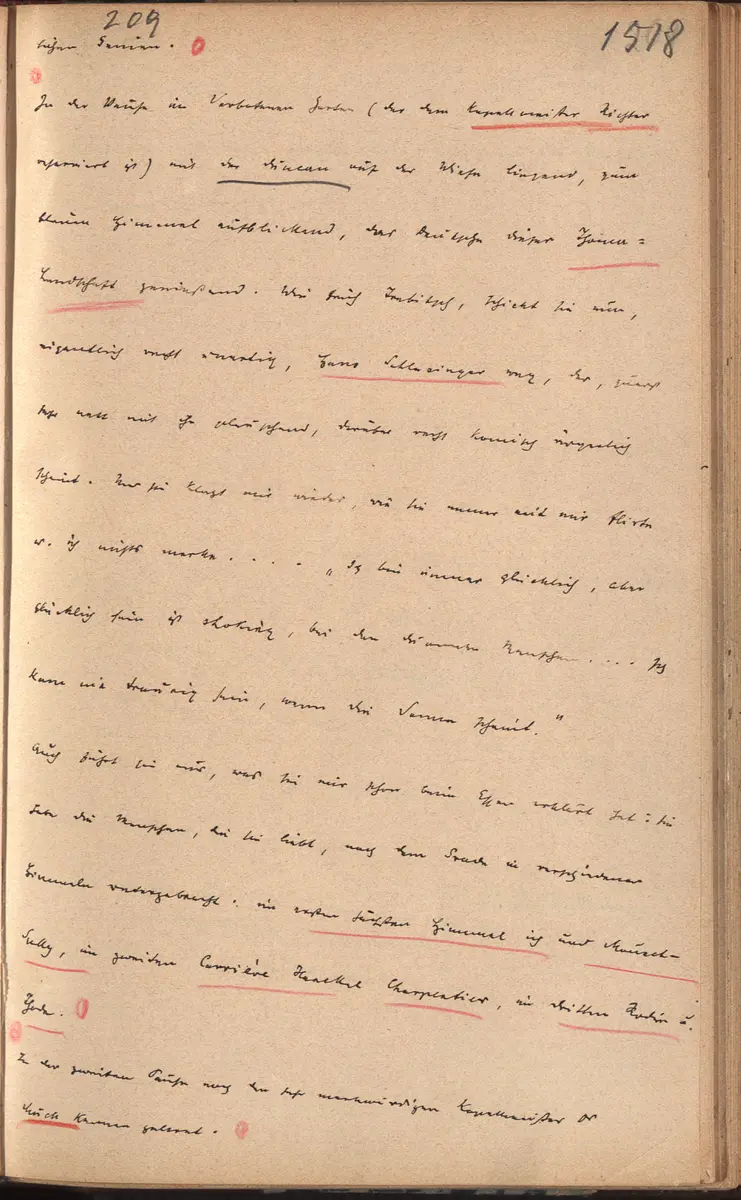 209
1518
lichen Genien.
In der Pause im Verbotenen Garten (der dem Kapellmeister Richter
reserviert ist) mit der Duncan auf der Wiese liegend, zum
blauen Himmel aufblickend, das Deutsche dieser Thoma=
Landschaft genießend. Wie früh Trebitsch, schickt sie nun,
eigentlich recht unartig, Hans Schlesinger weg, der, zuerst
sehr nett mit ihr plauschend, darüber recht komisch ärgerlich
scheint. Nur sie klagt mir wieder, wie sie immer mit mir flirte
u. ich nichts merke. . . . „Ich bin immer glücklich, aber
glücklich sein ist shoking, bei den dummen Menschen. . . . Ich
kann nie traurig sein, wenn die Sonne scheint."
Auch führt sie aus, was sie mir schon beim Essen erklärt hat: sie
habe die Menschen, die sie liebt, nach dem Grade in verschiedenen
Himmeln untergebracht: im ersten höchsten Himmel ich und Mounet-
Sully, im zweiten Carrière Haeckel Charpentier, im dritten Rodin u.
Thode.
In der zweiten Pause noch den sehr merkwürdigen Kapellmeister Dr
Muck kennen gelernt.